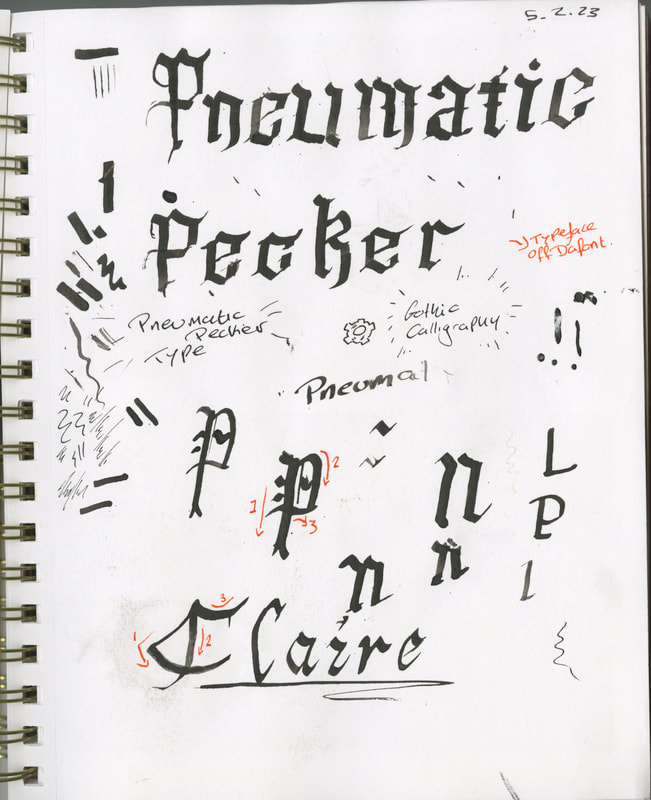 5.2.23
Pneumatic
Pecker
Typeface
off Dafont.
Pneumatic
Pecker
Type
Gothic
Calligraphy
!!
Pneumat
P
P
1
2
3
n
n
n
L
P
1
1
2
3
Claire